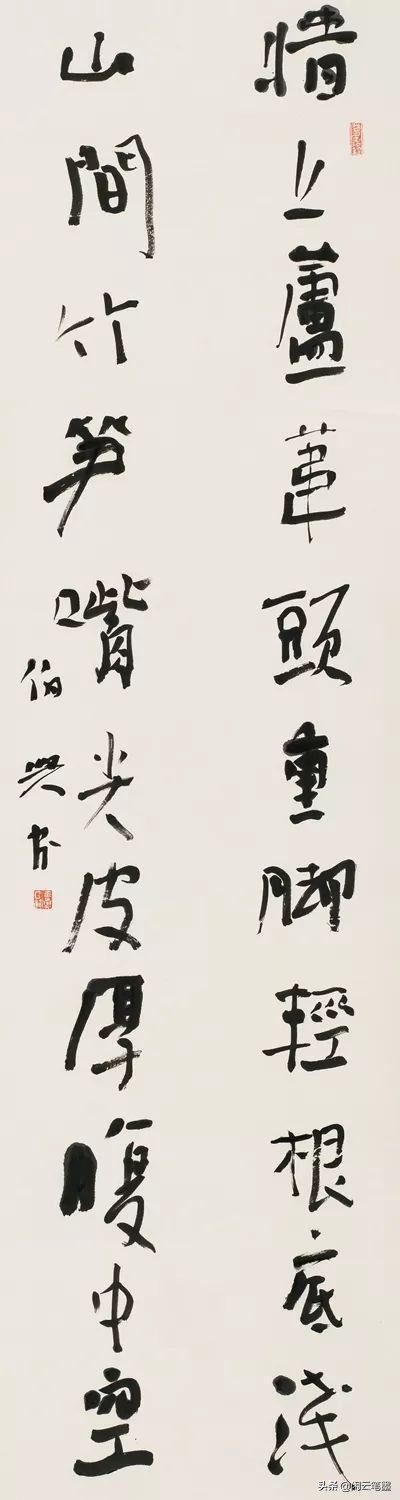 墙上蘆葦頭重脚輕根底浅
山間竹笋嘴尖皮厚腹中空
伯兴书
头条 @闲云笔墨